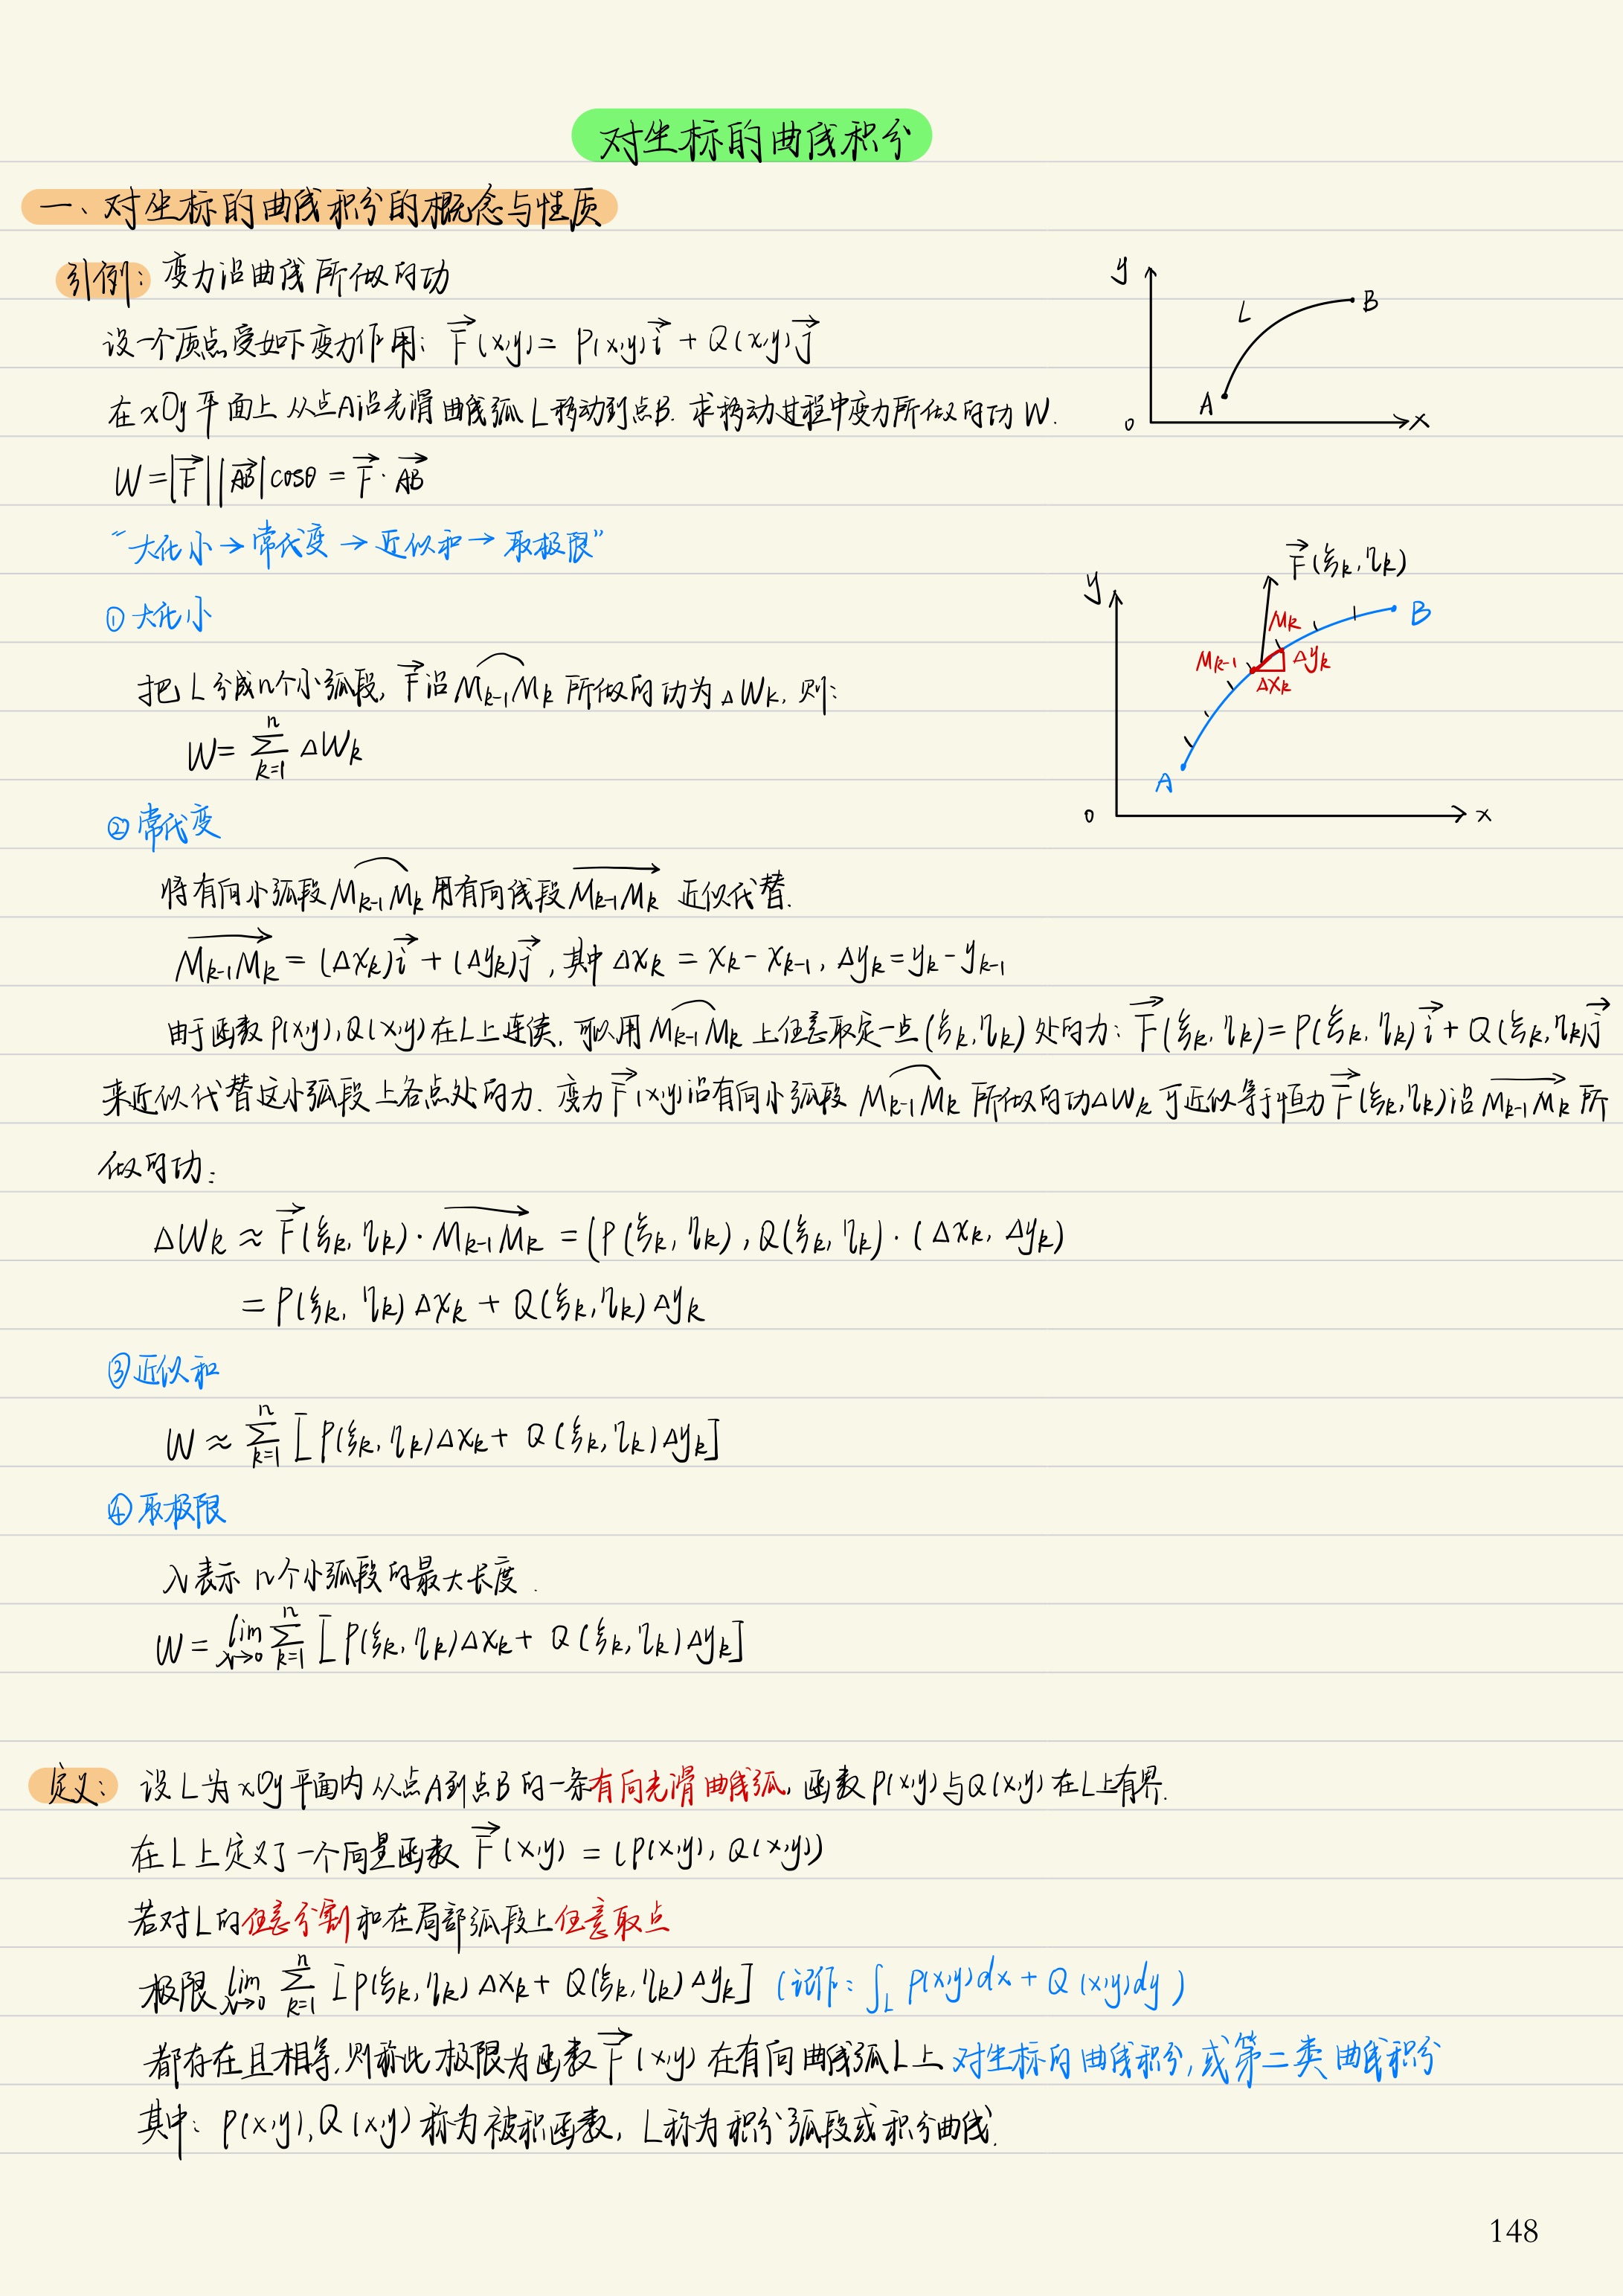 对坐标的曲线积分
一、对坐标的曲线积分的概念与性质
引例：变力沿曲线所做的功
设一个质点受如下变力作用：F⃗(x,y) = P(x,y)i⃗ + Q(x,y)j⃗
在xOy平面上从点A沿光滑曲线弧L移动到点B. 求移动过程中变力所做的功W.
y
L
B
A
0
x
W = |F⃗||AB⃗|cosθ = F⃗·AB⃗
“大化小→常代变→近似和→取极限”
①大化小
把L分成n个小弧段, F⃗沿M_{k-1}M_k所做的功为ΔW_k, 则:
W = \sum_{k=1}^{n} ΔW_k
y
F⃗(ξ_k, η_k)
B
M_k
M_{k-1}
Δy_k
Δx_k
A
0
x
②常代变
将有向小弧段M_{k-1}M_k用有向线段\overrightarrow{M_{k-1}M_k}近似代替.
\overrightarrow{M_{k-1}M_k} = (Δx_k)i⃗ + (Δy_k)j⃗, 其中Δx_k = x_k - x_{k-1}, Δy_k = y_k - y_{k-1}
由于函数P(x,y), Q(x,y)在L上连续, 可以用M_{k-1}M_k上任意取定一点(ξ_k, η_k)处的力: F⃗(ξ_k, η_k) = P(ξ_k, η_k)i⃗ + Q(ξ_k, η_k)j⃗
来近似代替这小弧段上各点处的力. 变力F⃗(x,y)沿有向小弧段M_{k-1}M_k所做的功ΔW_k可近似等于恒力F⃗(ξ_k, η_k)沿\overrightarrow{M_{k-1}M_k}所
做的功:
ΔW_k ≈ F⃗(ξ_k, η_k)·\overrightarrow{M_{k-1}M_k} = (P(ξ_k, η_k), Q(ξ_k, η_k)·(Δx_k, Δy_k)
= P(ξ_k, η_k)Δx_k + Q(ξ_k, η_k)Δy_k
③近似和
W ≈ \sum_{k=1}^{n} [P(ξ_k, η_k)Δx_k + Q(ξ_k, η_k)Δy_k]
④取极限
λ表示n个小弧段的最大长度.
W = \lim_{λ→0} \sum_{k=1}^{n} [P(ξ_k, η_k)Δx_k + Q(ξ_k, η_k)Δy_k]
定义: 设L为xOy平面内从点A到点B的一条有向光滑曲线弧, 函数P(x,y)与Q(x,y)在L上有界.
在L上定义了一个向量函数F⃗(x,y) = (P(x,y), Q(x,y))
若对L的任意分割和在局部弧段上任意取点
极限\lim_{λ→0} \sum_{k=1}^{n} [P(ξ_k, η_k)Δx_k + Q(ξ_k, η_k)Δy_k] (记作: ∫_L P(x,y)dx + Q(x,y)dy)
都存在且相等, 则称此极限为函数F⃗(x,y)在有向曲线弧L上对坐标的曲线积分, 或第二类曲线积分
其中: P(x,y), Q(x,y)称为被积函数, L称为积分弧段或积分曲线.
148